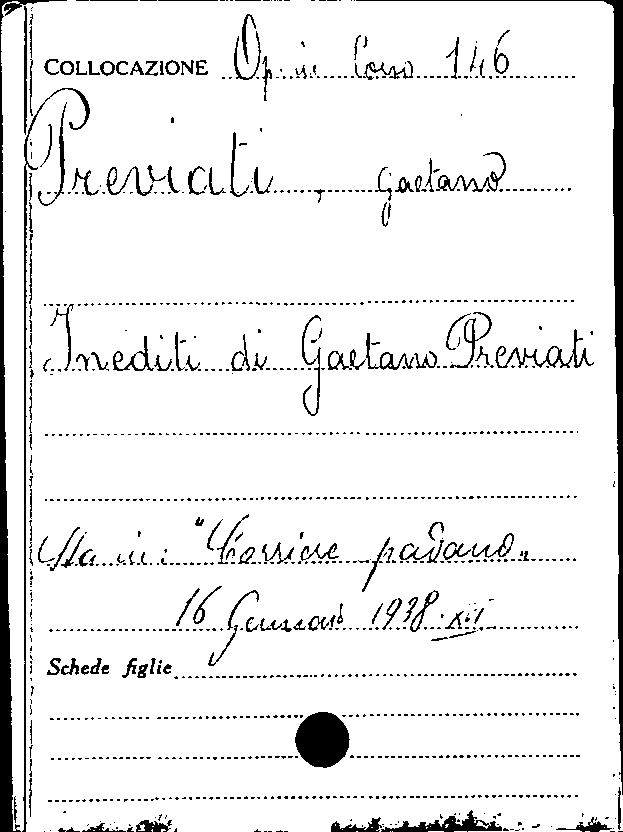 COLLOCAZIONE Op. in Corso 146
Previati, Gaetano
Inediti di Gaetano Previati
Sta in: "Corriere padano"
16 Gennaio 1938.
Schede figlie